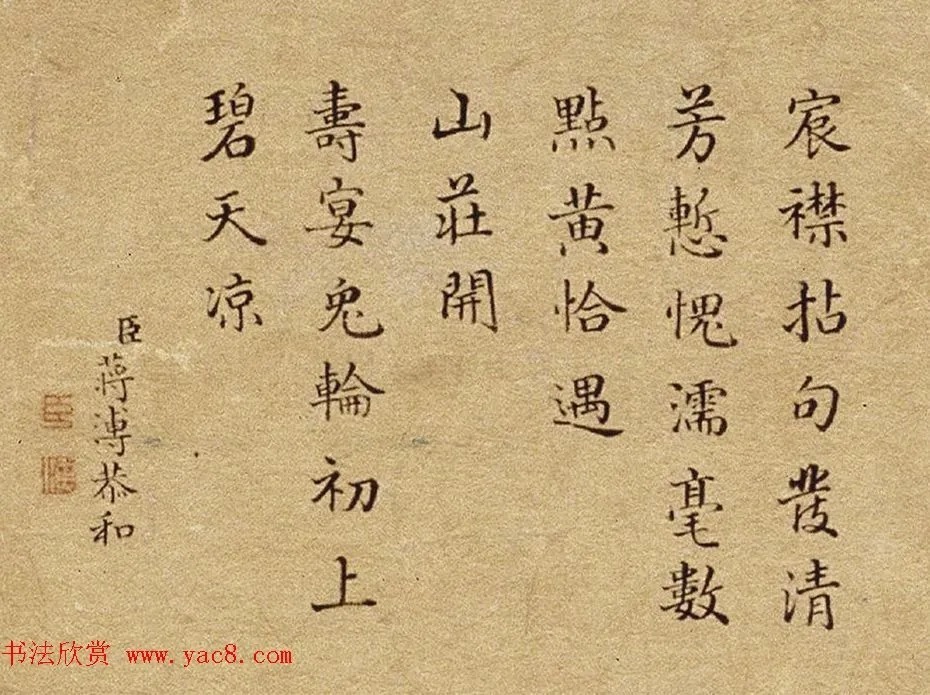 宸襟拈句發清
芳慙愧濡毫數
點黃恰遇
山莊開
壽宴兔輪初上
碧天凉
臣蔣溥恭和
书法欣赏 www.yac8.com